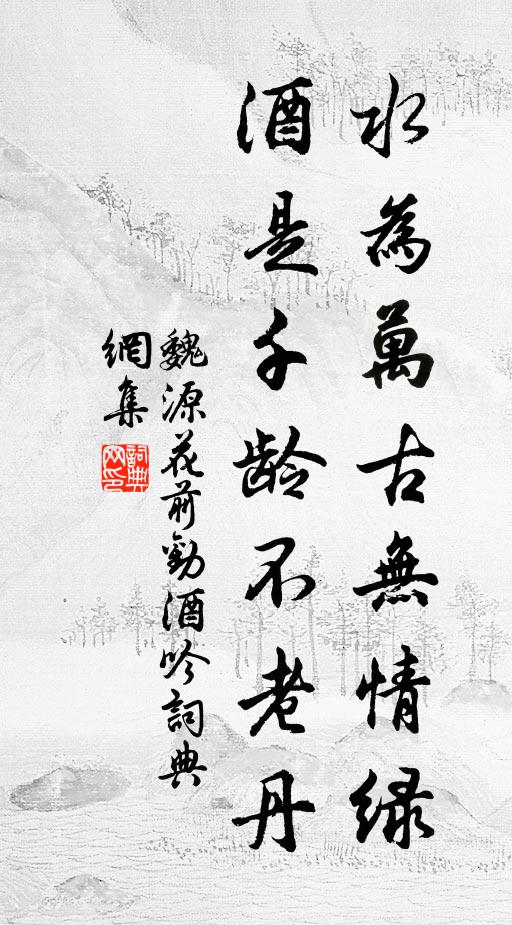 水為萬古無情綠
酒是千齡不老丹
魏源花前勸酒吟詞典
網集
詞典
网印